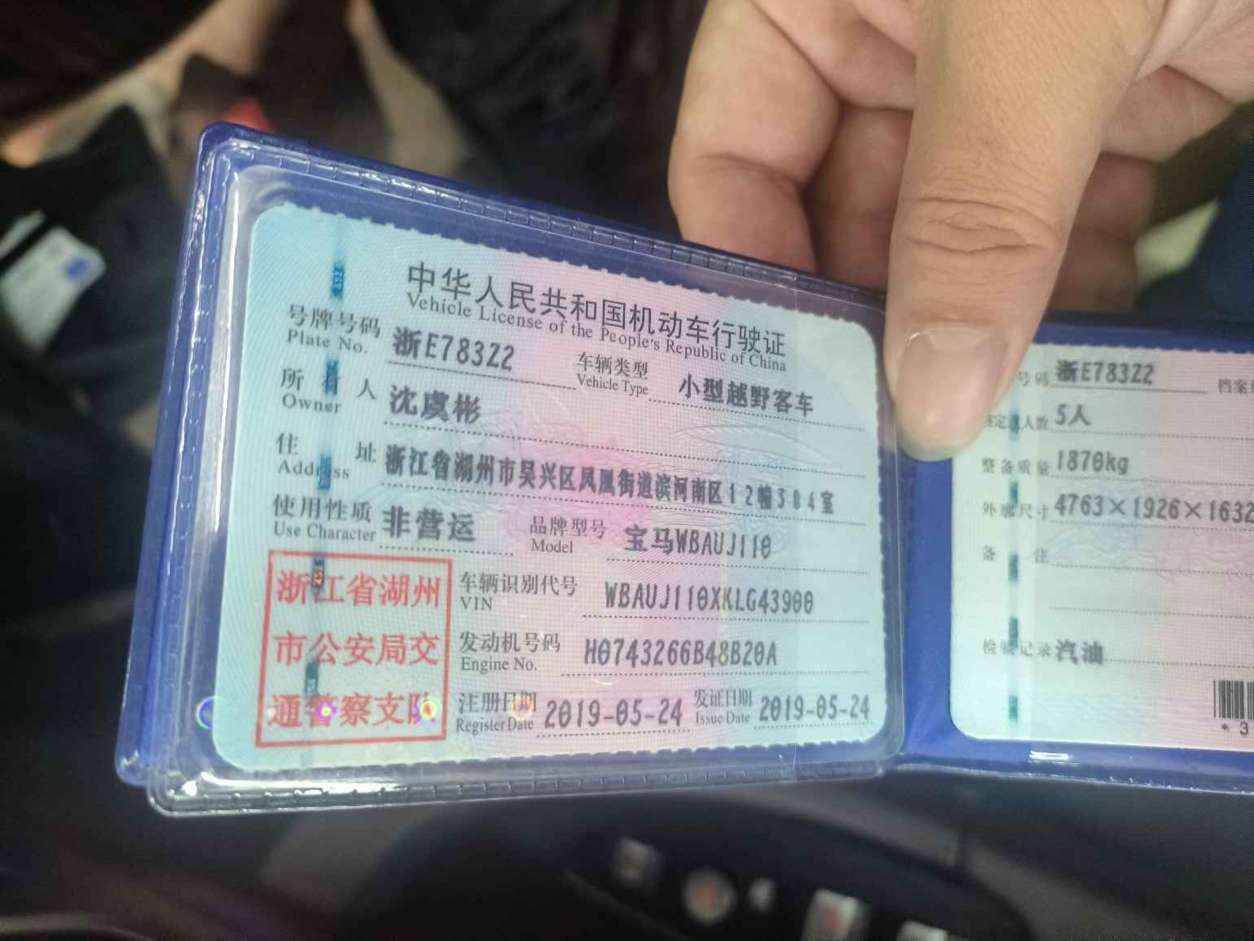 中华人民共和国机动车行驶证
Vehicle License of the People's Republic of China
号牌号码 浙E783Z2 车辆类型 小型越野客车
Plate No. Vehicle Type
所有人 沈虞彬
Owner
住址 浙江省湖州市吴兴区凤凰街道滨河南区12幢304室
Address
使用性质 非营运 品牌型号 宝马WBAUJ110
Use Character Model
浙江省湖州
市公安局交
通警察支队
车辆识别代号 WBAUJ110XKLG43900
VIN
发动机号码 H0743266B48B20A
Engine No.
注册日期 2019-05-24 发证日期 2019-05-24
Register Date Issue Date
号码 浙E783Z2 档案
人数 5人
整备质量 1870kg
外廓尺寸 4763×1926×1632
备注
检验记录 汽油
* 3